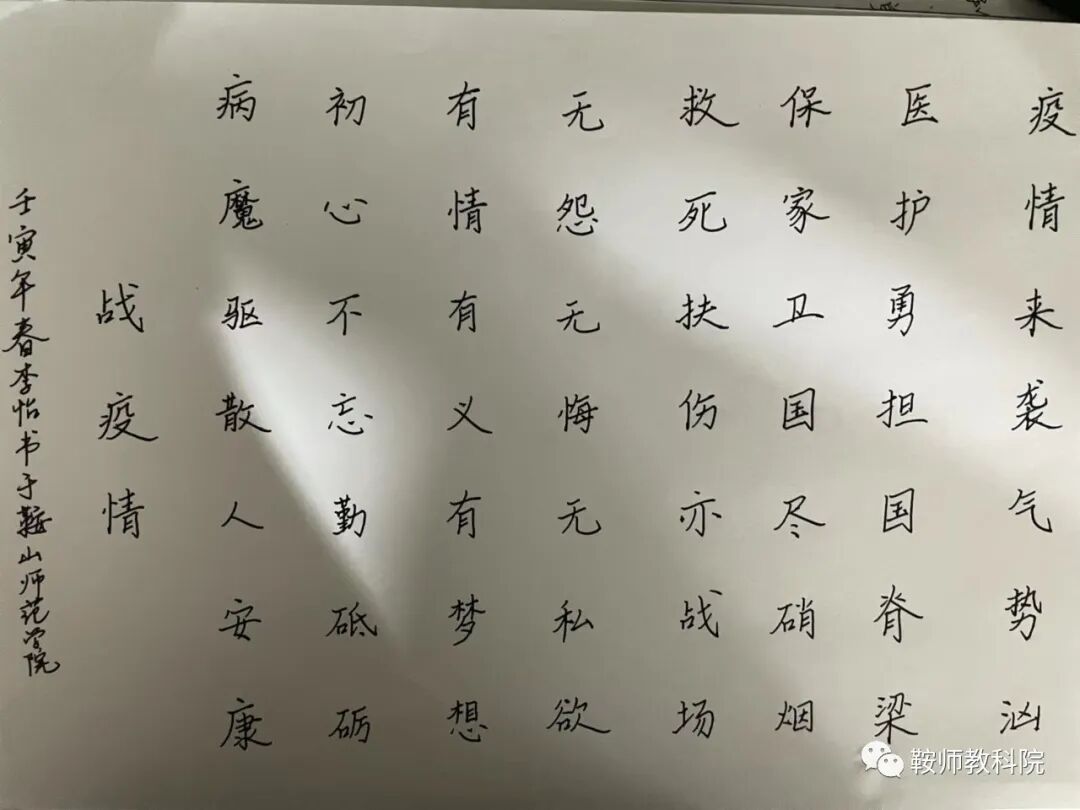 疫情来袭气势汹
医护勇担国脊梁
保家卫国尽硝烟
救死扶伤亦战场
无怨无悔无私欲
有情有义有梦想
初心不忘勤砥砺
病魔驱散人安康
战疫情
壬寅年春李怡书于鞍山师范学院
鞍师教科院